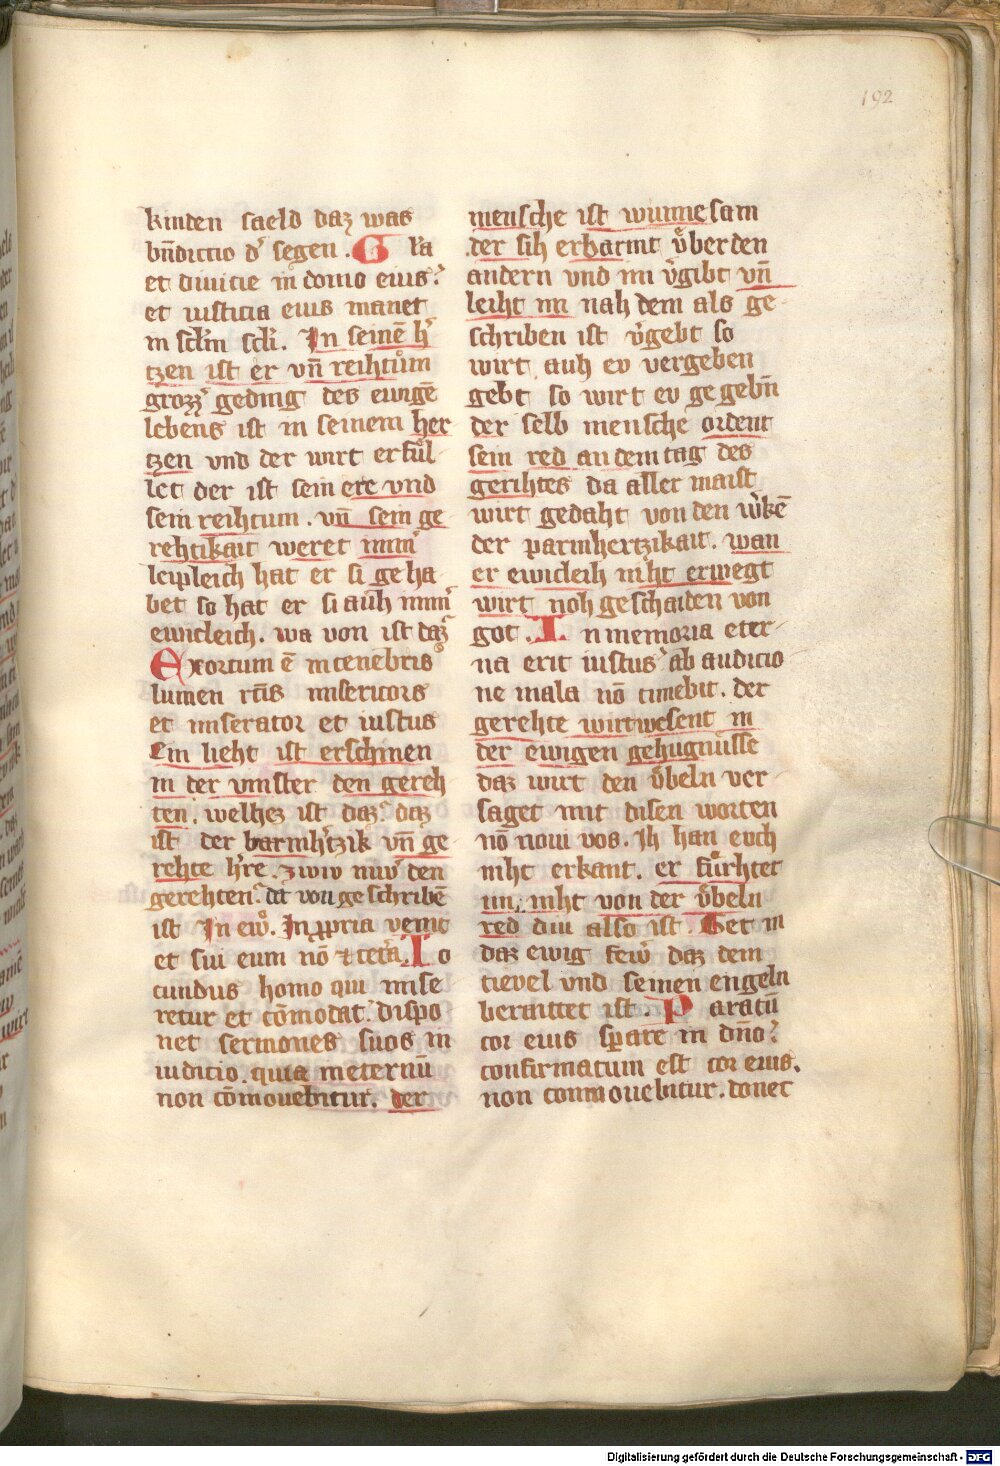 192
kinden saeld daz was
bn̄dictio d͛ segen . Gl̄a
et diuicie in domo eius ?
et iusticia eius manet
in scl̄m scl̄i . In seinē h͛
tzen ist er vn̄ reihtuͦm
grozz͛ geding des ewigē
lebens ist in seinem her
tzen vnd der wirt erfuͤl
let der ist sein ere vnd
sein reihtum . vn̄ sein ge
rehtikait weret imm͛
leipleich hat er si geha
bet so hat er si auh imm͛
ewicleich . wa von ist daz
Exortum ē in tenebris
lumen rc̄is misericors
et miserator et iustus
Ein lieht ist erschinen
in der vinster den gereh
ten . welhez ist daz . daz
ist der barmh͛tzik vn̄ ge
rehte h͛re . zwiv niv den
gerehten . da von geschribē
ist In ew̄ . In ꝓpria venit
et sui eum nō ⁊ cetͣa . Io
cundus homo qui mise
retur et cōmodat . dispo
net sermones suos in
iuditio . quia in eternū
non cōmouebitur . der
mensche ist wunnesam
der sih erbarmt vͤber den
andern vnd im v͛gibt vn̄
leiht im nah dem als ge
schriben ist v͛gebt so
wirt auh ev vergeben
gebt so wirt ev gegebn̄
der selb mensche ordent
sein red an dem tag des
gerihtes da aller maist
wirt gedaht von den w͛kē
der parmhertzikait . wan
er ewicleih niht erwegt
wirt noh geschaiden von
got . In memoria eter
na erit iustus ab auditio
ne mala nō timebit . der
gerehte wirt wesent in
der ewigen gehugnuͤsse
daz wirt den vͤbeln ver
saget mit disen worten
nō noui vos . Ih han euch
niht erkant . er fuͤrhtet
im niht von der vͤbeln
red diu also ist . Get in
daz ewig fewͦ daz dem
tievel vnd seinen engeln
beraittet ist . Paratū
cor eius sꝑare in dn̄o ?
confirmatum est cor eius .
non conmouebitur . donec
Digitalisierung gefördert durch die Deutsche Forschungsgemeinschaft - DFG